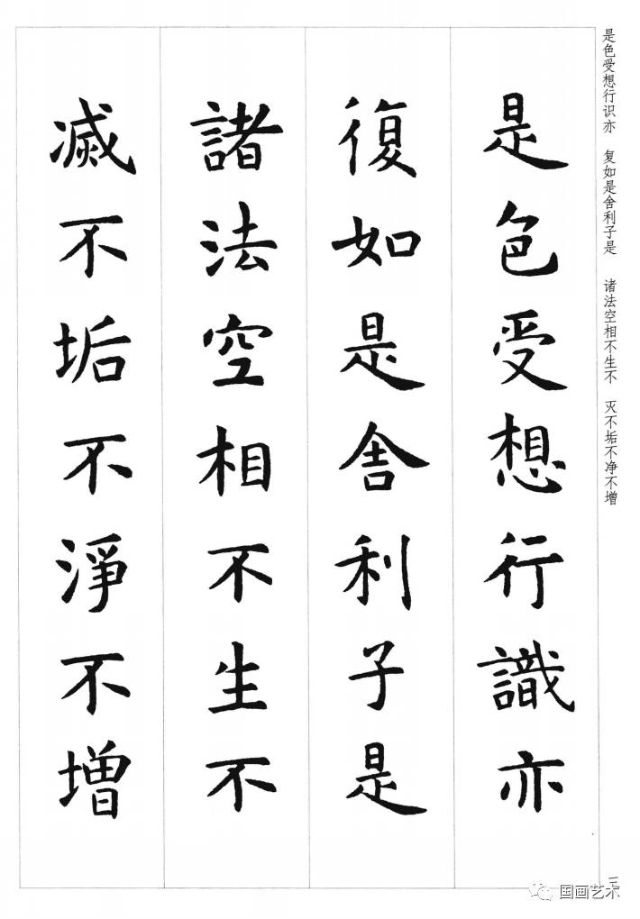 是色受想行識亦
復如是舍利子是
諸法空相不生不
滅不垢不淨不增
是色受想行识亦 复如是舍利子是 诸法空相不生不 灭不垢不净不增
国画艺术